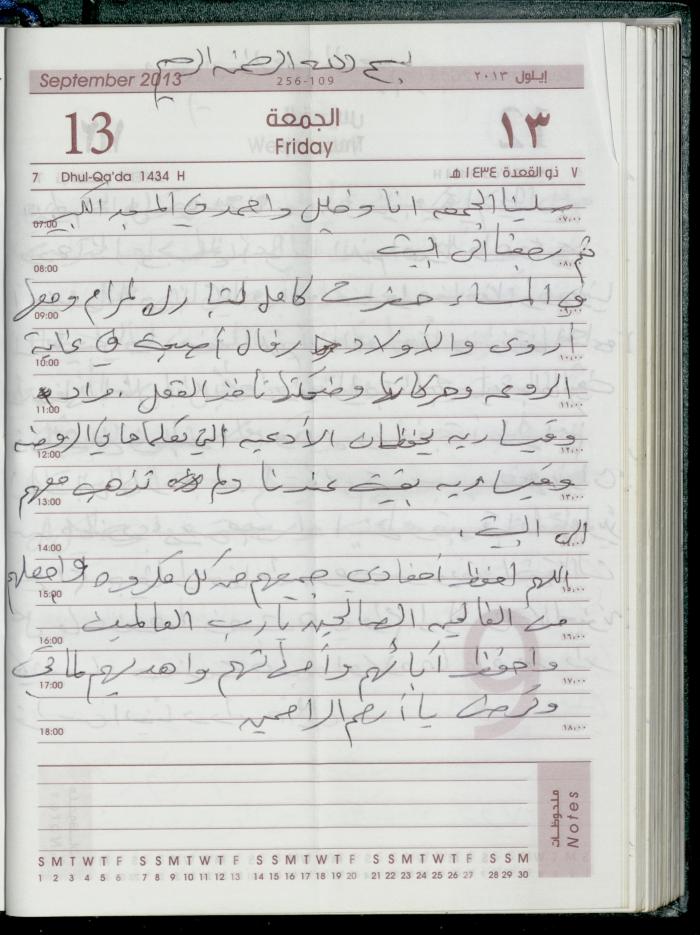 بسم الله الرحمن الرحيم
September 2013 256-109 إيلول ٢٠١٣
13 الجمعة ١٣
Friday
7 Dhul-Qa'da 1434 H ٧ ذو القعدة ١٤٣٤ هـ
صلينا الجمعه انا و واحمد في المسجد الكبير
07:00 ٠٧:٠٠
ثم رجعنا الى البيت
08:00 ٠٨:٠٠
في المساء حضرت كامل لتبارك لمرام ومعها
09:00 ٠٩:٠٠
أروى والأولاد أصبحت في غاية
10:00 ١٠:٠٠
الروعه وحركاتها وضحكتها تأخذ العقل . مراد
11:00 ١١:٠٠
وميساريه يحفظان الأدعيه التي تعلماها في الروضه
12:00 ١٢:٠٠
وميساريه بقيت عندنا ولم تذهب معهم
13:00 ١٣:٠٠
الى البيت .
14:00 ١٤:٠٠
اللهم احفظ احفادي جميعهم من كل مكروه واجعلهم
15:00 ١٥:٠٠
من الصالحين يا رب العالمين
16:00 ١٦:٠٠
واحفظ آبائهم وأمهاتهم واهديهم لما تحب
17:00 ١٧:٠٠
وترضى يا أرحم الراحمين
18:00 ١٨:٠٠
ملحوظات Notes
S M T W T F S S M T W T F S S M T W T F S S M T W T F S S M
1 2 3 4 5 6 7 8 9 10 11 12 13 14 15 16 17 18 19 20 21 22 23 24 25 26 27 28 29 30